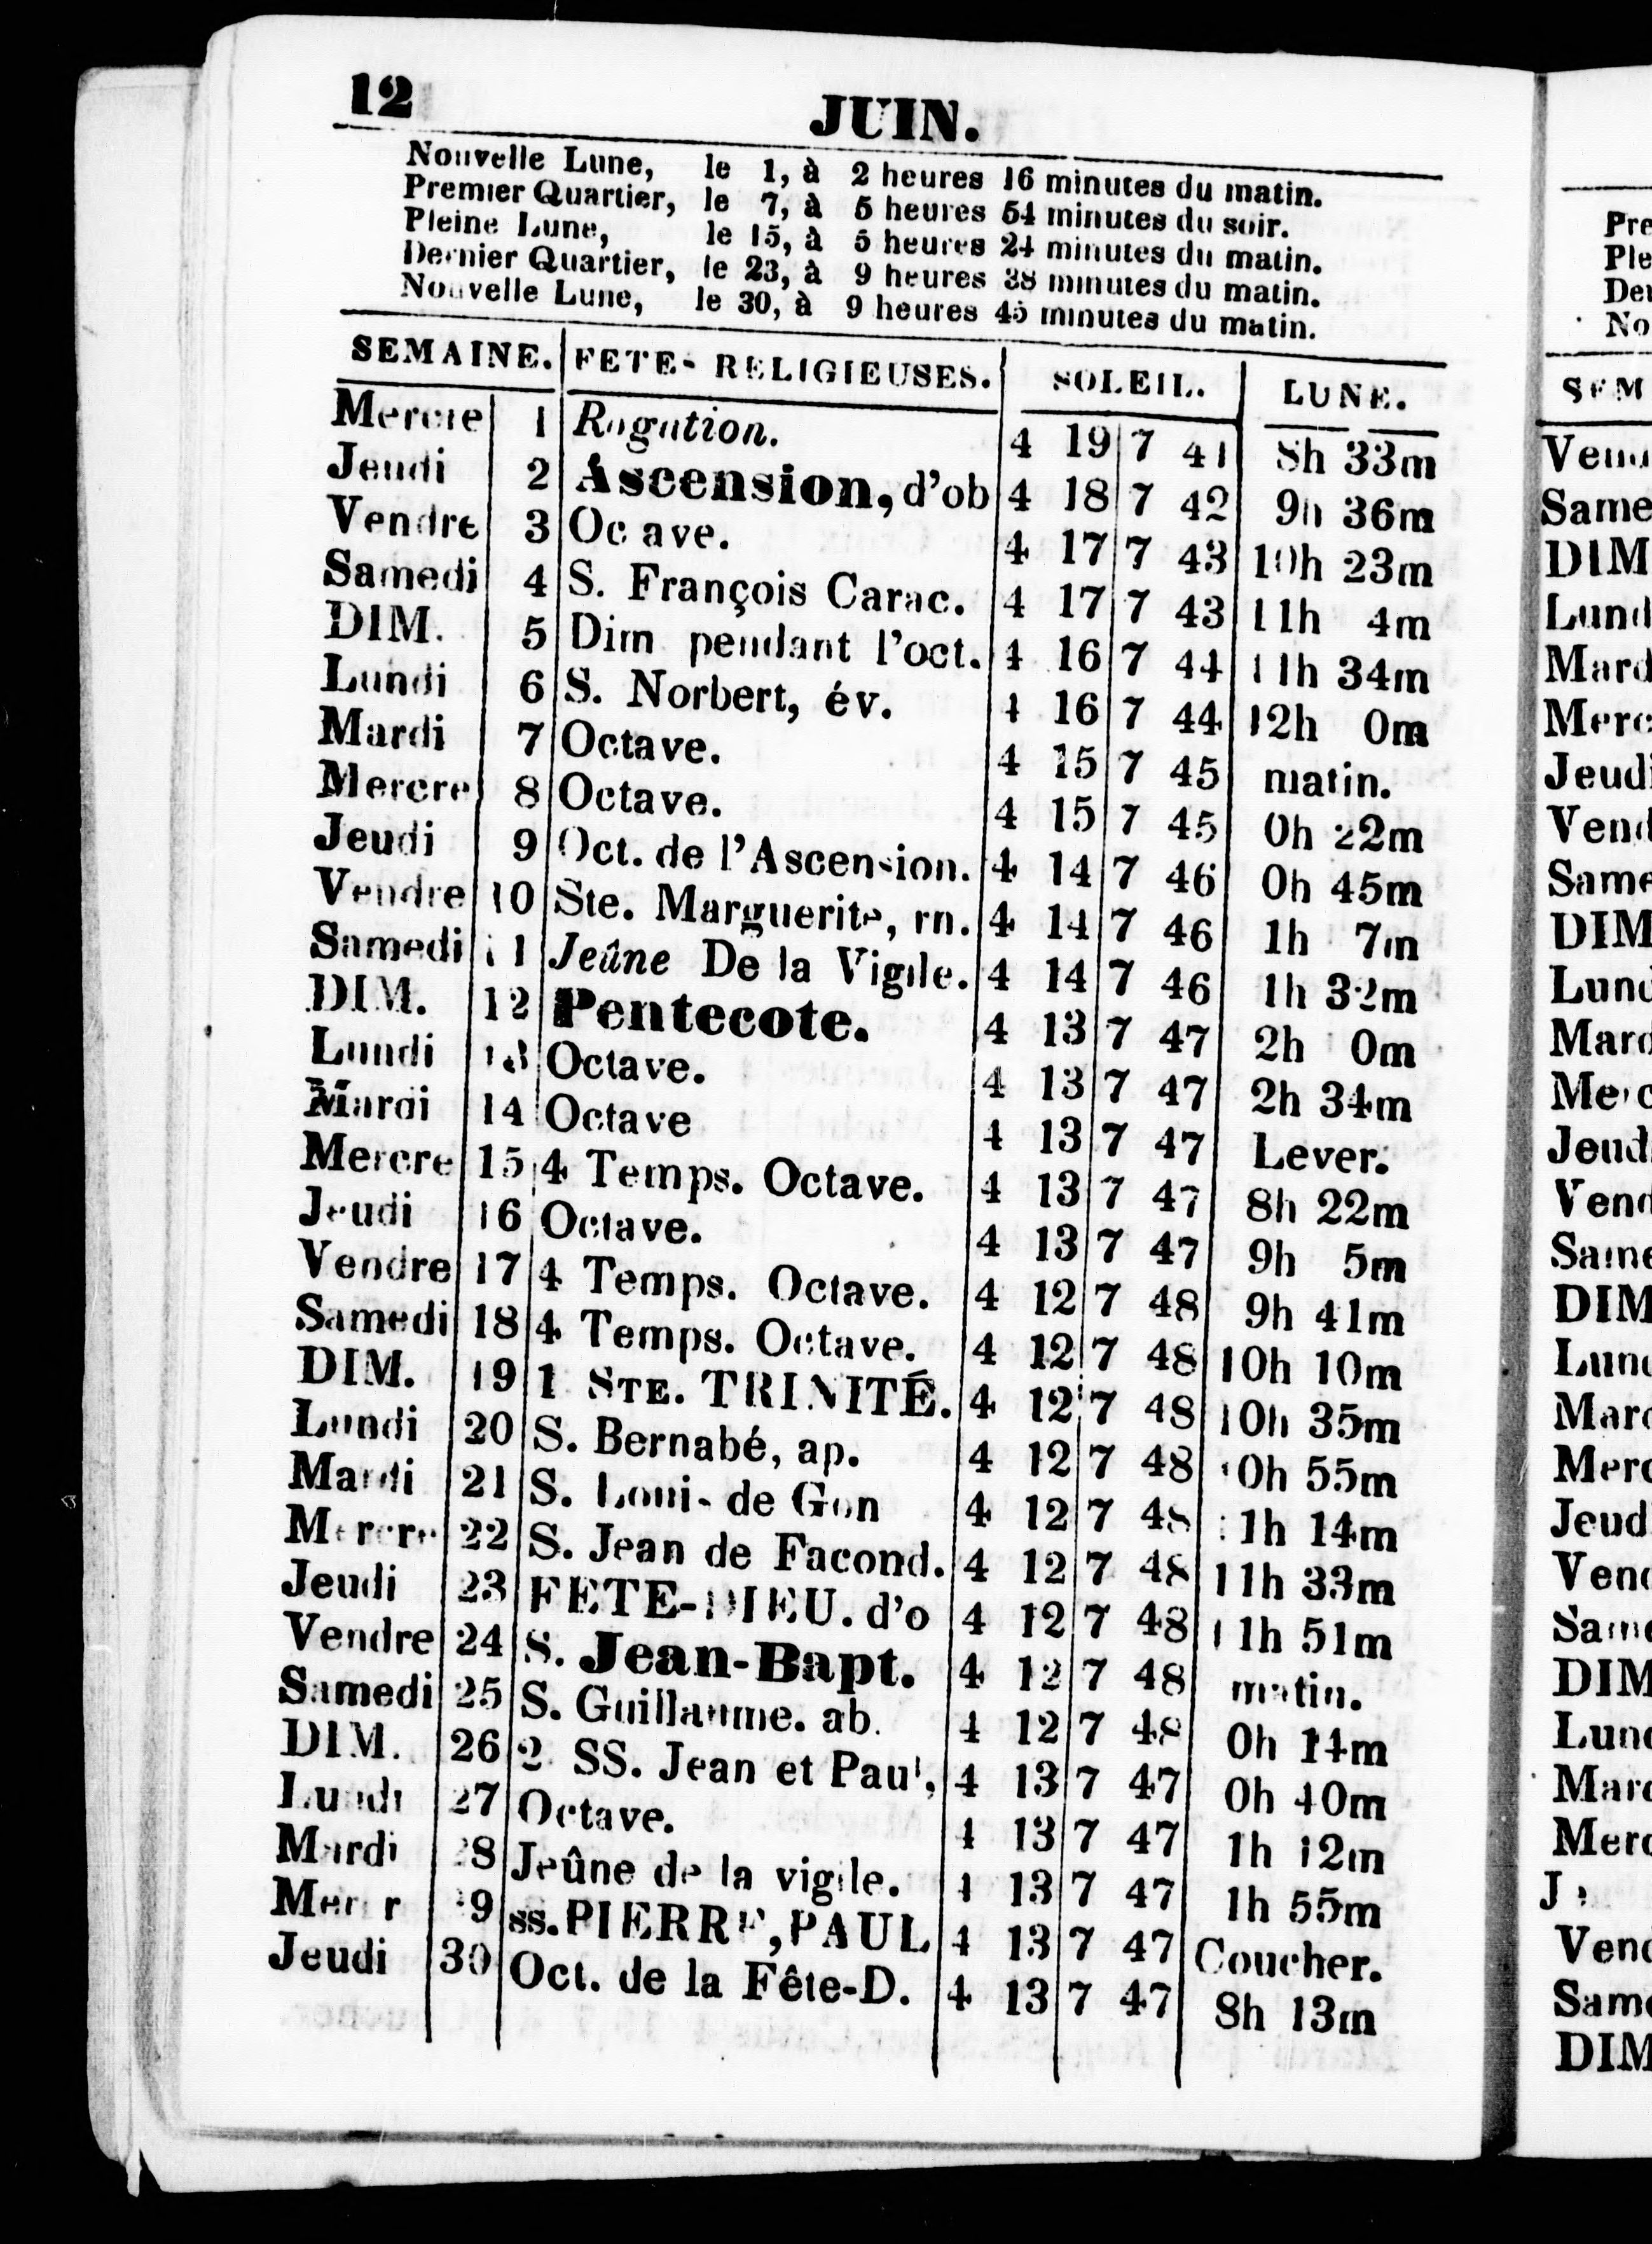 12
JUIN.
Nouvelle Lune, le 1, à 2 heures 16 minutes du matin.
Premier Quartier, le 7, à 5 heures 54 minutes du soir.
Pleine Lune, le 15, à 5 heures 24 minutes du matin.
Dernier Quartier, le 23, à 9 heures 38 minutes du matin.
Nouvelle Lune, le 30, à 9 heures 45 minutes du matin.
SEMAINE. FETE- RELIGIEUSES. SOLEIL. LUNE.
Mercre 1 Rogation. 4 19 7 41 8h 33m
Jeudi 2 Ascension, d'ob 4 18 7 42 9h 36m
Vendre 3 Oc ave. 4 17 7 43 10h 23m
Samedi 4 S. François Carac. 4 17 7 43 11h 4m
DIM. 5 Dim pendant l'oct. 4 16 7 44 11h 34m
Lundi 6 S. Norbert, év. 4 16 7 44 12h 0m
Mardi 7 Octave. 4 15 7 45 matin.
Mercre 8 Octave. 4 15 7 45 0h 22m
Jeudi 9 Oct. de l'Ascension. 4 14 7 46 0h 45m
Vendre 10 Ste. Marguerite, rn. 4 14 7 46 1h 7m
Samedi 11 Jeûne De la Vigile. 4 14 7 46 1h 32m
DIM. 12 Pentecote. 4 13 7 47 2h 0m
Lundi 13 Octave. 4 13 7 47 2h 34m
Mardi 14 Octave 4 13 7 47 Lever.
Mercre 15 4 Temps. Octave. 4 13 7 47 8h 22m
Jeudi 16 Octave. 4 13 7 47 9h 5m
Vendre 17 4 Temps. Octave. 4 12 7 48 9h 41m
Samedi 18 4 Temps. Octave. 4 12 7 48 10h 10m
DIM. 19 1 STE. TRINITÉ. 4 12 7 48 10h 35m
Lundi 20 S. Bernabé, ap. 4 12 7 48 10h 55m
Mardi 21 S. Loui- de Gon 4 12 7 48 11h 14m
Mercre 22 S. Jean de Facond. 4 12 7 48 11h 33m
Jeudi 23 FETE-DIEU. d'o 4 12 7 48 11h 51m
Vendre 24 S. Jean-Bapt. 4 12 7 48 matin.
Samedi 25 S. Guillaume. ab. 4 12 7 48 0h 14m
DIM. 26 2 SS. Jean et Paul, 4 13 7 47 0h 40m
Lundi 27 Octave. 4 13 7 47 1h 12m
Mardi 28 Jeûne de la vigile. 4 13 7 47 1h 55m
Mercr 29 ss. PIERRE, PAUL 4 13 7 47 Coucher.
Jeudi 30 Oct. de la Fête-D. 4 13 7 47 8h 13m
Pre
Ple
Der
No
SEM
Vend
Same
DIM
Lund
Mard
Merc
Jeudi
Vend
Same
DIM
Lund
Mard
Merc
Jeud
Vend
Same
DIM
Lund
Mard
Merc
Jeud
Vend
Same
DIM
Lund
Mard
Merc
J
Vend
Same
DIM